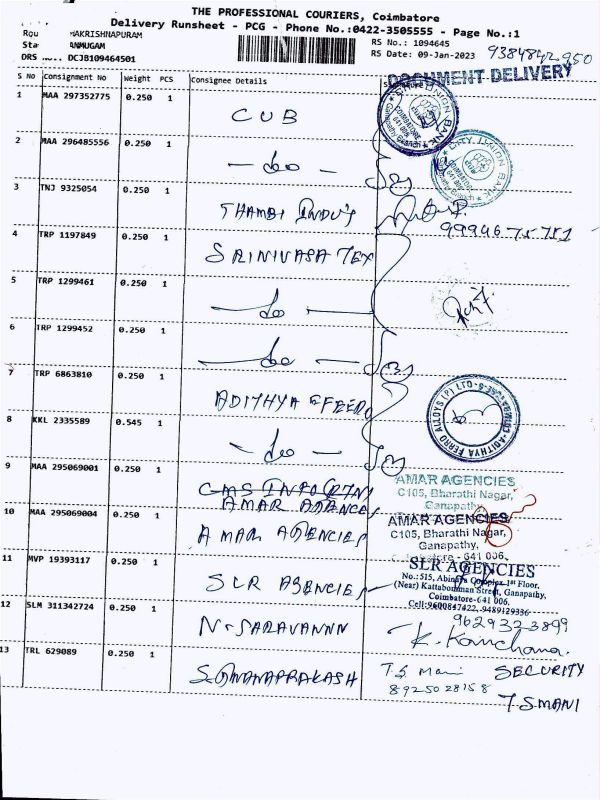 THE PROFESSIONAL COURIERS, Coimbatore
Delivery Runsheet - PCG - Phone No.:0422-3505555 - Page No.:1
AKRISHNAPURAM
RS No.: 1094645
ANMUGAM
RS Date: 09-Jan-2023
9384842950
DRS No.: DCJB109464501
DOCUMENT DELIVERY
S No Consignment No Weight PCS Consignee Details
1 MAA 297352775 0.250 1 CUB
2 MAA 296485556 0.250 1 - do -
3 TNJ 9325054 0.250 1 THAMBI INDU'S
9994675751
4 TRP 1197849 0.250 1 SRINIVASA TEX
5 TRP 1299461 0.250 1 - do -
6 TRP 1299452 0.250 1 - do -
7 TRP 6863810 0.250 1 ADITHYA FFERRO
ADITHYA FERRO ALLOYS (P) LTD
8 KKL 2335589 0.545 1 - do -
9 MAA 295069001 0.250 1
AMAR AGENCIES
AMAR AGENCIES
C105, Bharathi Nagar,
Ganapathy,
10 MAA 295069004 0.250 1 AMAR AGENCIES
AMAR AGENCIES
C105, Bharathi Nagar,
Ganapathy,
Coimbatore - 641 006.
11 MVP 19393117 0.250 1 SLR AGENCIES
SLR AGENCIES
No.: 515, Abinaya Complex 1st Floor,
(Near) Kattabomman Street, Ganapathy,
Coimbatore-641 006.
Cell:9600847422, 9489129336
12 SLM 311342724 0.250 1 N. SARAVANNN
9629323899
K. Kanchana.
13 TRL 629089 0.250 1 S. GNANAPRAKASH
T.S Mani SECURITY
8925028158
T.S MANI